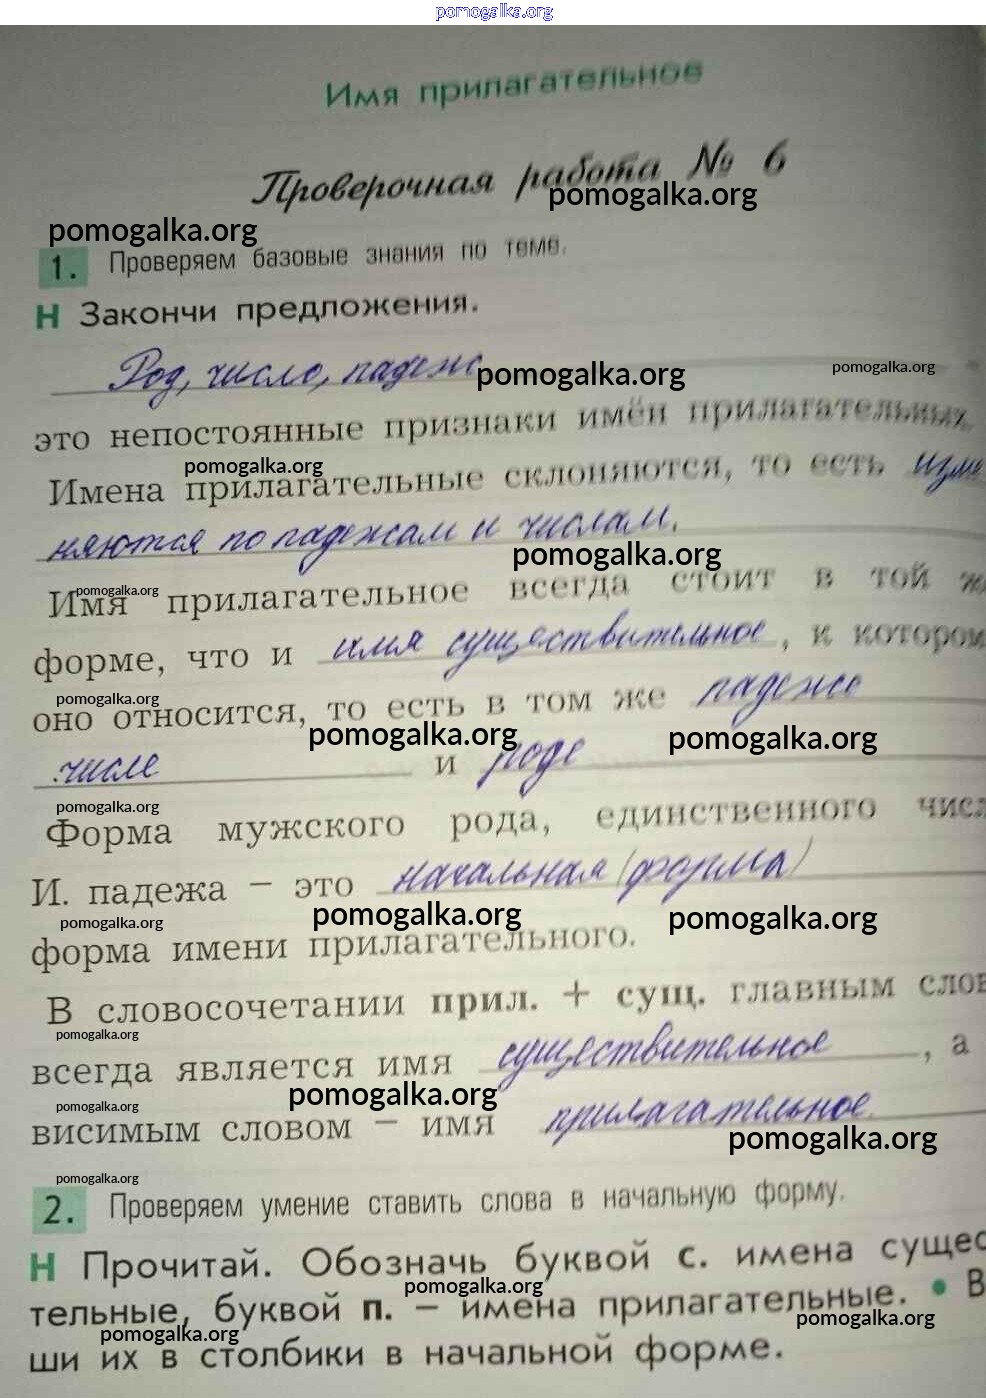 pomogalka.org
Имя прилагательное
Проверочная работа № 6
pomogalka.org
pomogalka.org
1. Проверяем базовые знания по теме.
Н Закончи предложения.
Род, число, падеж
pomogalka.org
pomogalka.org
это непостоянные признаки имён прилагательных.
pomogalka.org
Имена прилагательные склоняются, то есть изме
няются по падежам и числам.
pomogalka.org
pomogalka.org
Имя прилагательное всегда стоит в той ж
форме, что и имя существительное, к котором
pomogalka.org
оно относится, то есть в том же падеже
pomogalka.org
pomogalka.org
числе и роде
pomogalka.org
Форма мужского рода, единственного числ
И. падежа – это начальная (форма)
pomogalka.org
pomogalka.org
pomogalka.org
форма имени прилагательного.
В словосочетании прил. + сущ. главным слов
pomogalka.org
всегда является имя существительное, а
pomogalka.org
pomogalka.org
висимым словом – имя прилагательное.
pomogalka.org
pomogalka.org
2. Проверяем умение ставить слова в начальную форму.
Н Прочитай. Обозначь буквой с. имена сущес
pomogalka.org
тельные, буквой п. – имена прилагательные. • В
pomogalka.org
pomogalka.org
ши их в столбики в начальной форме.